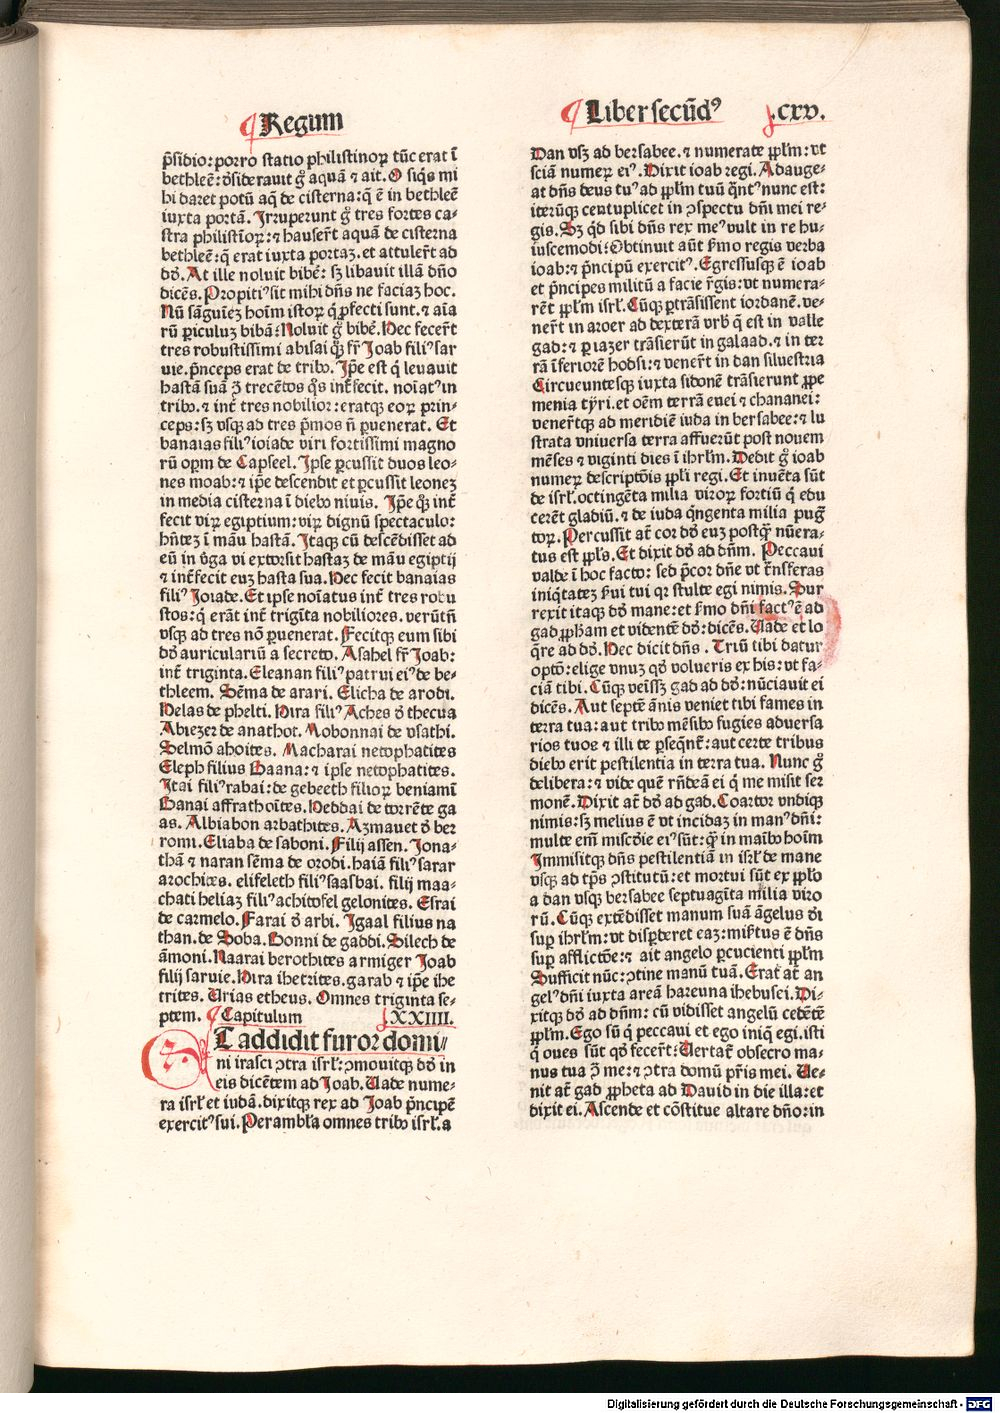 Regum
p̄sidio: porro statio philistinoꝝ tūc erat ī
bethleē: ꝺ̄siderauit gͦ aquā ⁊ ait. O siqͥs mi
hi daret potū aqͣ de cisterna: q̄ ē in bethleē
iuxta portā. Irruperunt gͦ tres fortes ca-
stra philistīoꝝ: ⁊ hauserūt aquā de cisterna
bethleē: q̄ erat iuxta portaꝫ. et attulerūt ad
dō. At ille noluit biberē: sꝫ libauit illā dn̄o
dicēs. Propitiꝰ sit mihi dn̄s ne faciaꝫ hoc.
Nū sāguīeꝫ hoīm istoꝝ q̄ ꝓfecti sunt. ⁊ aīa
rū ꝑiculuꝫ bibā: Noluit gͦ biberē. Hec fecerūt
tres robustissimi abisai qͦꝫ fr̄ Joab filiꝰ sar
uie. p̄nceps erat de tribꝰ. Ip̄e est q̄ leuauit
hastā suā ꝯ̄ trecētos qͦs int̄fecit. noīatꝰ in
tribꝰ. ⁊ int̄ tres nobilior: eratqꝫ eoꝝ prin-
ceps: sꝫ vsqꝫ ad tres p̄mos n̄ ꝑuenerat. Et
banaias filiꝰ ioiade viri fortissimi magno
rū oꝑm de Capseel. Ipse ꝑcussit duos leo-
nes moab: ⁊ ip̄e descendit et ꝑcussit leoneꝫ
in media cisterna ī diebꝰ niuis. Ip̄e qͦꝫ int̄
fecit viꝝ egiptium: viꝝ dignū spectaculo:
hn̄teꝫ ī māu hastā. Itaqꝫ cū descēdisset ad
eū in v̄ga vi extorsit hastaꝫ de māu egiptij
⁊ int̄fecit euꝫ hasta sua. Hec fecit banaias
filiꝰ Joiade. Et ipse noīatus int̄ tres robu
stos: q̄ erāt int̄ trigīta nobiliores. verūtn̄
vsqꝫ ad tres nō ꝑuenerat. Fecitqꝫ eum sibi
dō auriculariū a secreto. Asahel fr̄ Joab:
int̄ triginta. Eleanan filiꝰ patrui eiꝰ de be-
thleem. Sēma de arari. Elicha de arodi.
Helas de phelti. Hira filiꝰ Aches ꝺ̄ thecua
Abiezer de anathot. Mobonnai de vsathi.
Selmō ahoites. Macharai netophatites
Eleph filius Baana: ⁊ ipse netophatites.
Itai filiꝰ rabai: de gebeeth filioꝝ beniamī
Banai affrathoītes. Heddai de torrēte ga
as. Albiabon arbathites. Azmauet ꝺ̄ ber
romi. Eliaba de saboni. Filij assen. Jona-
thā ⁊ naran sēma de orodi. haiā filiꝰ sarar
arochites. elifeleth filiꝰ saasbai. filij maa-
chati heliaꝫ filiꝰ achitofel gelonites. Esrai
de carmelo. Farai ꝺ̄ arbi. Igaal filius na
than. de Soba. Bonni de gaddi. Silech de
āmoni. Naarai berothites armiger Joab
filij saruie. Hira ihetrites. garab ⁊ ip̄e ihe
trites. Urias etheus. Omnes triginta se-
ptem. Capitulum XXIIII.
Et addidit furor domi
ni irasci ꝯtra isrl̄: ꝯmouitqꝫ dō in
eis dicētem ad Joab. Uade nume-
ra isrl̄ et iudā. dixitqꝫ rex ad Joab p̄ncipē
exercitꝰ sui. Perambl̄a omnes tribꝰ isrl̄. a
Liber secūdꝰ .CXV.
Dan vsqꝫ ad bersabee. ⁊ numerate ꝓpl̄m: vt
sciā numeꝝ eiꝰ. Dixit ioab regi. Adauge-
at dn̄s deus tuꝰ ad ꝓpl̄m tuū qͣntꝰ nunc est:
iterūqꝫ centuplicet in ꝯspectu dn̄i mei re-
gis. Sꝫ qͥd sibi dn̄s rex meꝰ vult in re hu-
iuscemodi: Obtinuit aūt ẜmo regis verba
ioab: ⁊ p̄ncipū exercitꝰ. Egressusqꝫ ē ioab
et p̄ncipes militū a facie r̄gis: vt numera-
rēt ꝓpl̄m isrl̄. Cūqꝫ ꝑtrāsissent iordanē. ve-
nerūt in aroer ad dexterā vrbꝰ q̄ est in valle
gad: ⁊ ꝑ iazer trāsierūt in galaad. ⁊ in ter
rā īferiorē hodsi: ⁊ venerūt in dan siluestria
Circueuntesqꝫ iuxta sidonē trāsierunt ꝓpe
menia tyri. et oēm terrā euei ⁊ chananei:
venerūtqꝫ ad meridiē iuda in bersabee: ⁊ lu
strata vniuersa terra affuerūt post nouem
mēses ⁊ viginti dies ī ihrl̄m. Dedit gͦ ioab
numeꝝ descriptōis ꝓpl̄i regi. Et inuēta sūt
de isrl̄. octingēta milia viroꝝ fortiū q̄ edu
cerēt gladiū. ⁊ de iuda qͥngenta milia pug
toꝝ. Percussit at̄ cor dō euꝫ postqͣ̄ nūera-
tus est ꝓpl̄s. Et dixit dō ad dn̄m. Peccaui
valde ī hoc facto: sed p̄cor dn̄e vt t̄nsferas
iniqͥtateꝫ ẜui tui qꝛ stulte egi nimis. Sur
rexit itaqꝫ dō mane: et ẜmo dn̄i factꝰ ē ad
gad ꝓpham et videntē dō: dicēs. Uade et lo
qͥre ad dō. Hec dicit dn̄s. Triū tibi datur
optō: elige vnuꝫ qͦd volueris ex his: vt fa-
ciā tibi. Cūqꝫ veīsꝫ gad ad dō: nūciauit ei
dicēs. Aut septē ānis veniet tibi fames in
terra tua: aut tribꝰ mēsibꝰ fugies aduersa
rios tuos ⁊ illi te ꝑseqͣnt̄: aut certe tribus
diebꝰ erit pestilentia in terra tua. Nunc gͦ
delibera: ⁊ vide quē rn̄deā ei q̄ me misit ser
monē. Dixit at̄ dō ad gad. Coartor vndiqꝫ
nimis: sꝫ melius ē vt incidaꝫ in manꝰ dn̄i:
multe em̄ miscd̄ie eiꝰ sūt: qͣ̄ in maībꝰ hoīm
Immisitqꝫ dn̄s pestilentiā in isrl̄ de mane
vsqꝫ ad tp̄s ꝯstitutū: et mortui sūt ex ꝓpl̄o
a dan vsqꝫ bersabee septuagīta milia viro
rū. Cūqꝫ extēdisset manum suā āgelus dn̄i
suꝑ ihrl̄m: vt disꝑderet eaꝫ: miẜtus ē dn̄s
suꝑ afflictōe: ⁊ ait angelo ꝑcucienti ꝓpl̄m
Sufficit nūc: ꝯtine manū tuā. Erat at̄ an
gelꝰ dn̄i iuxta areā hareuna ihebusei. Di-
xitqꝫ dō ad dn̄m: cū vidisset angelū cedētē
ꝓpl̄m. Ego sū q̄ peccaui et ego iniq̄ egi. isti
q̄ oues sūt qͥd fecerūt: Uertat̄ obsecro ma-
nus tua ꝯ̄ me: ⁊ ꝯtra domū pr̄is mei. Ue-
nit at̄ gad ꝓpheta ad Dauid in die illa: et
dixit ei. Ascende et cōstitue altare dn̄o: in
Digitalisierung gefördert durch die Deutsche Forschungsgemeinschaft - DFG